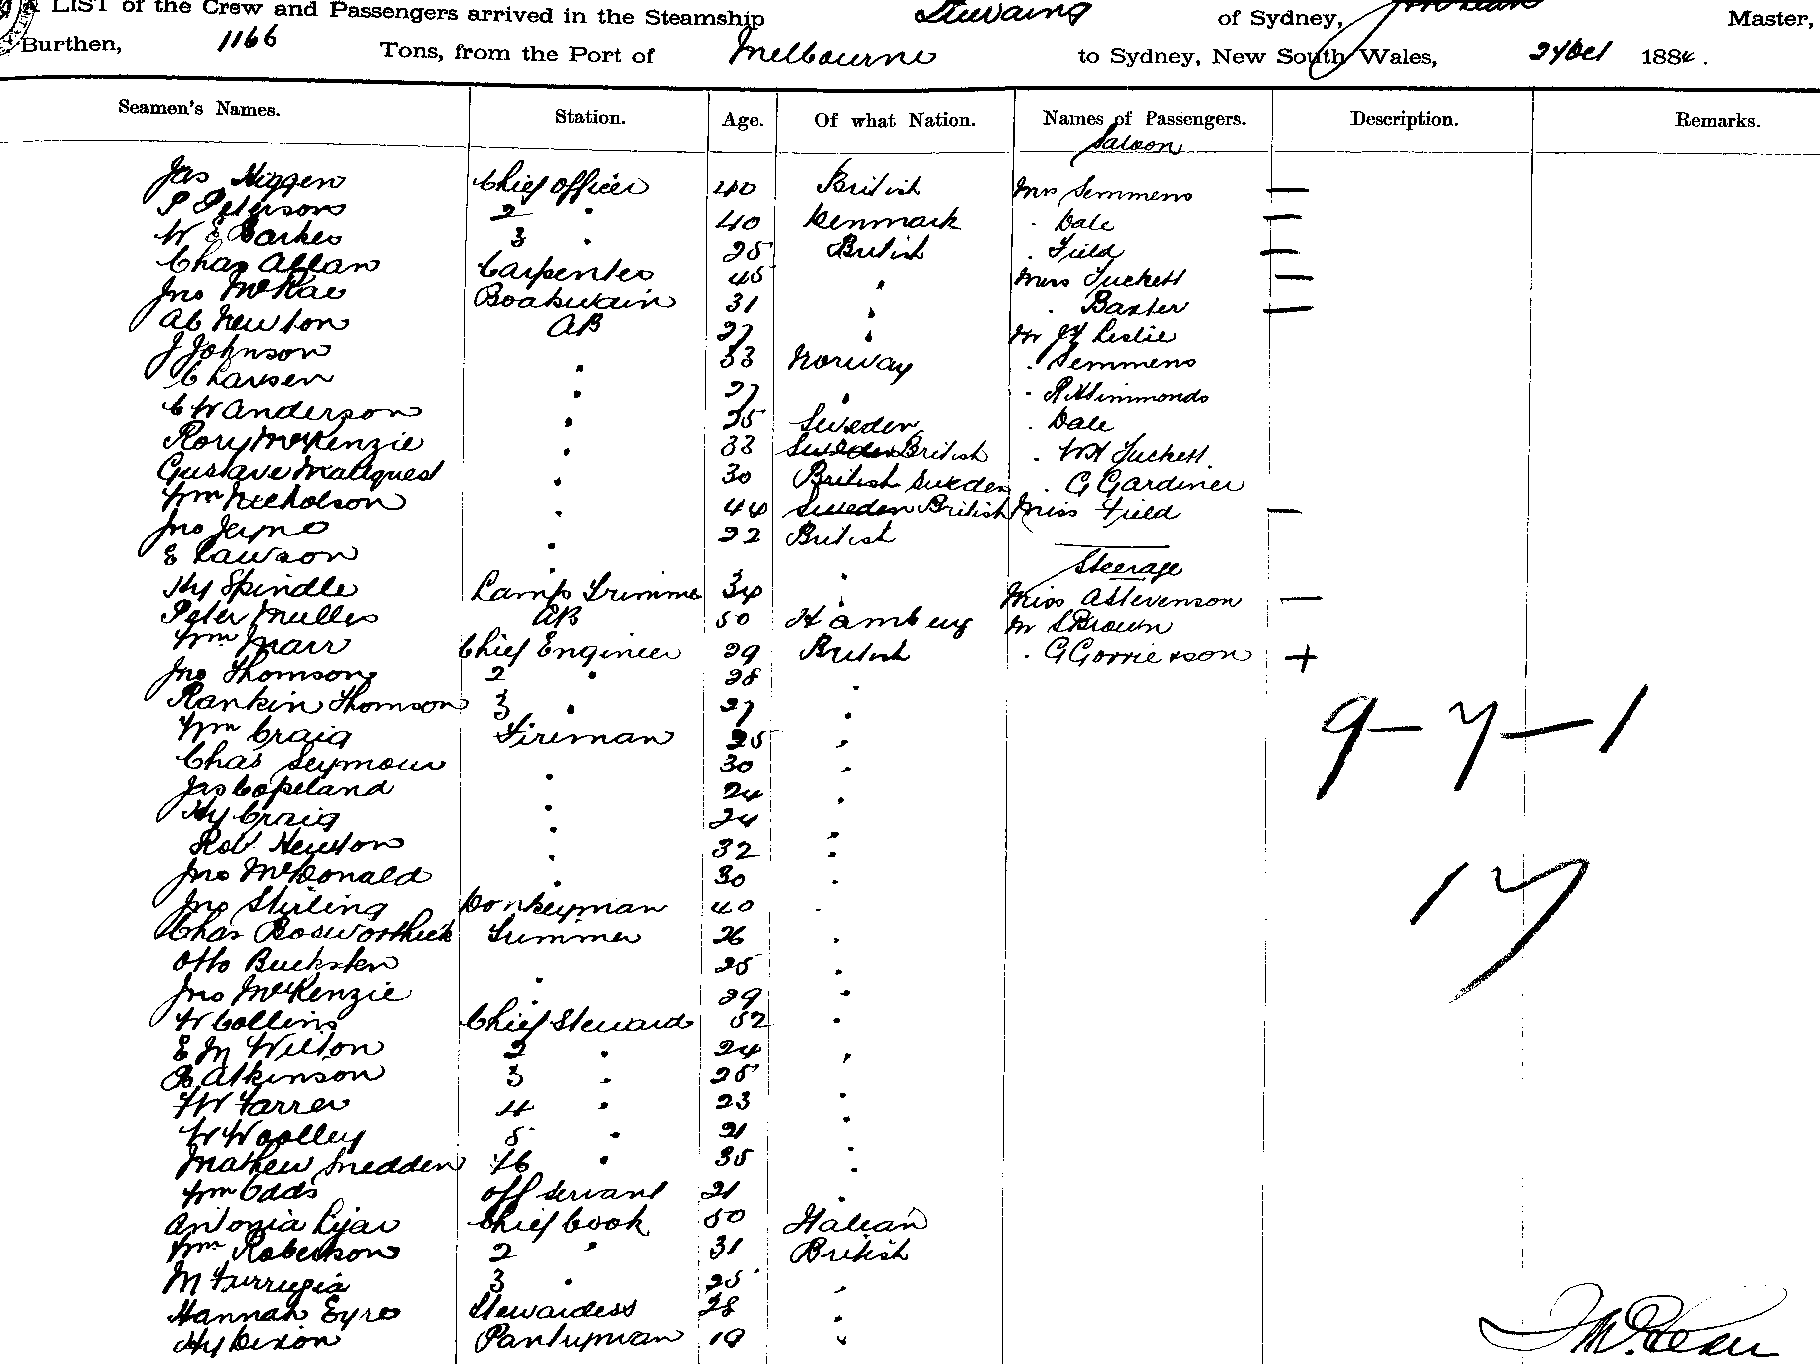 A LIST of the Crew and Passengers arrived in the Steamship of Sydney, Master,
Burthen, 1166 Tons, from the Port of Melbourne to Sydney, New South Wales, 24 Oct 1884.
Seamen's Names. Station. Age. Of what Nation. Names of Passengers. Description. Remarks.
Saloon
Jas Higgen Chief Officer 40 British Mrs Semmens —
P Peterson 2 " 40 Denmark " Dale —
W E Barkes 3 " 25 British " Field —
Chas Allan Carpenter 45 " Miss Tuckett —
Jno McRae Boatswain 31 " " Baxter —
Ab Newton AB 27 " Mr Leslie
J Johnson " 33 Norway " Semmens
C Larsen " 27 " " R H Simmonds
C W Anderson " 35 Sweden " Dale
Rory McKenzie " 33 Sweden British " W H Tuckett.
Gustave Malquest " 30 British Sweden " G Gardiner
Wm Nicholson " 44 Sweden British Miss Field —
Jno Jeyne " 22 British
E Lawson "
Steerage
Hy Spindle Lamp Trimmer 34 " Miss A Stevenson —
Peter Muller AB 50 Hamburg Mr S Brown
Wm Marr Chief Engineer 29 British " G Gorrie & son +
Jno Thomson 2 " 28 "
Rankin Thomson 3 " 27 "
9 — 7 — 1
Wm Craig Fireman 25 "
Chas Seymour " 30 "
Jas Copeland " 24 "
Hy Craig " 24 "
Robt Newton " 32 "
Jno McDonald " 30 "
17
Jno Stirling Donkeyman 40 "
Chas Bosworthick Trimmer 26 "
Otto Bucksten " 25 "
Jno McKenzie " 29 "
W Collins Chief Steward 52 "
E M Wilton 2 " 24 "
B Atkinson 3 " 25 "
F W Farrer 4 " 23 "
W Woolley 5 " 21 "
Mathew Snedden " 35 "
Wm Odds off servant 21 "
Antonia Lijar Chief Cook 50 Italian
Wm Robertson 2 " 31 British
M Furrugia 3 " 25 "
Hannah Eyre Stewardess 28 "
Hy Dixon Pantryman 19 "